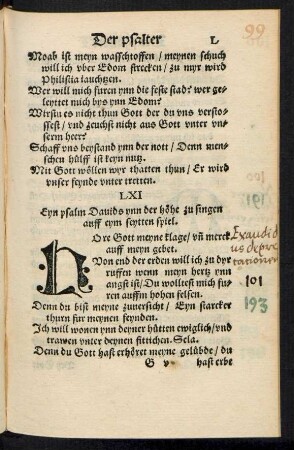 Der psalter L
99
Moab ist meyn wasschtoffen / meynen schuch
will ich vber Edom strecken / zu myr wird
Philistia iauchtzen.
Wer will mich furen ynn die feste stad? wer ge-
leyttet mich bys ynn Edom?
Wirstu es nicht thun Gott der du vns verstos-
sest / vnd zeuchst nicht aus Gott vnter vn-
sern heer?
Schaff vns beystand ynn der nott / Denn men-
schen hülff ist keyn nutz.
Mit Gott wöllen wyr thatten thun / Er wird
vnser feynde vnter tretten.
LXI
191
Eyn psalm Dauids ynn der höhe zu singen
auff eym seytten spiel.
HOre Gott meyne klage / vñ merck
auff meyn gebet.
Exaudi d
us depre
tationem
Von end der erden will ich zu dyr
ruffen wenn meyn hertz ynn
angst ist / Du wolltest mich fu-
ren auffn hohen felsen.
101
Denn du bist meyne zuuersicht / Eyn starcker
thurn fur meynen feynden.
193
Ich will wonen ynn deyner hütten ewiglich / vnd
trawen vnter deynen fittichen. Sela.
Denn du Gott hast erhöret meyne gelübde / du
G v hast erbe